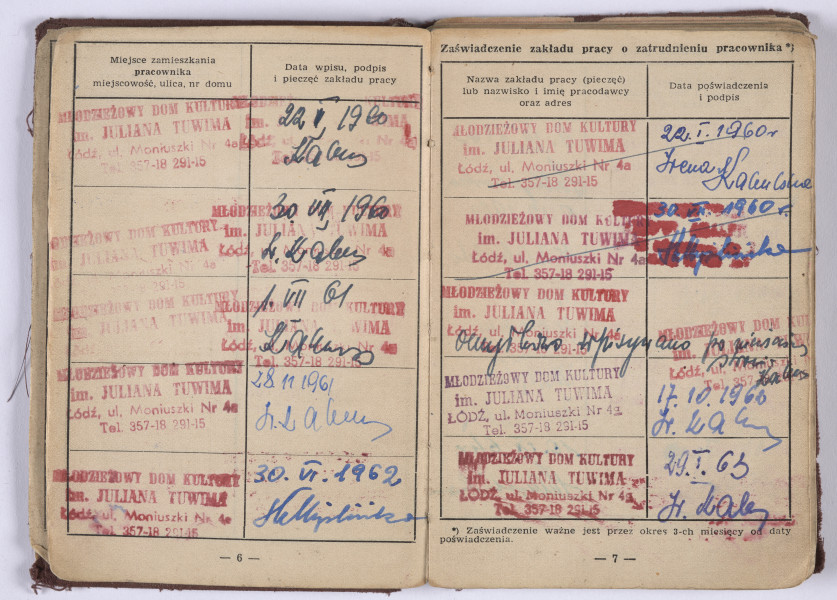 Miejsce zamieszkania
pracownika
miejscowość, ulica, nr domu
Data wpisu, podpis
i pieczęć zakładu pracy
MŁODZIEŻOWY DOM KULTURY
im. JULIANA TUWIMA
Łódź, ul. Moniuszki Nr 4a
Tel. 357-18 291-15
22 1960
MŁODZIEŻOWY DOM KULTURY
im. JULIANA TUWIMA
Łódź, ul. Moniuszki Nr 4a
MŁODZIEŻOWY DOM KULTURY
im. JULIANA TUWIMA
Łódź, ul. Moniuszki Nr 4a
Tel. 357-18 291-15
30. VII 1960
MŁODZIEŻOWY DOM KULTURY
im. JULIANA TUWIMA
MŁODZIEŻOWY DOM KULTURY
im. JULIANA TUWIMA
Łódź, ul. Moniuszki Nr 4a
Tel. 357-18 291-15
1. VII 61
MŁODZIEŻOWY DOM KULTURY
im. JULIANA TUWIMA
Łódź, ul. Moniuszki Nr 4a
Tel. 357-18 291-15
28 11 1961
MŁODZIEŻOWY DOM KULTURY
im. JULIANA TUWIMA
Łódź, ul. Moniuszki Nr 4a
Tel. 357-18 291-15
30. VI. 1962
— 6 —
Zaświadczenie zakładu pracy o zatrudnieniu pracownika *)
Nazwa zakładu pracy (pieczęć)
lub nazwisko i imię pracodawcy
oraz adres
Data poświadczenia
i podpis
MŁODZIEŻOWY DOM KULTURY
im. JULIANA TUWIMA
Łódź, ul. Moniuszki Nr 4a
Tel. 357-18 291-15
22. I. 1960 r
Irena
MŁODZIEŻOWY DOM KULTURY
im. JULIANA TUWIMA
Łódź, ul. Moniuszki Nr 4a
Tel. 357-18 291-15
30. 1960 r.
MŁODZIEŻOWY DOM KULTURY
im. JULIANA TUWIMA
Łódź, ul. Moniuszki Nr 4a
Omyłkowo
MŁODZIEŻOWY DOM KULTURY
ŁÓDŹ, ul. Moniuszki Nr 4a
MŁODZIEŻOWY DOM KULTURY
im. JULIANA TUWIMA
ŁÓDŹ, ul. Moniuszki Nr 4a
Tel. 357-18 291-15
17. 10. 1960
MŁODZIEŻOWY DOM KULTURY
im. JULIANA TUWIMA
ŁÓDŹ, ul. Moniuszki Nr 4a
Tel. 357-18 291-15
29. I. 63
*) Zaświadczenie ważne jest przez okres 3-ch miesięcy od daty
poświadczenia.
— 7 —